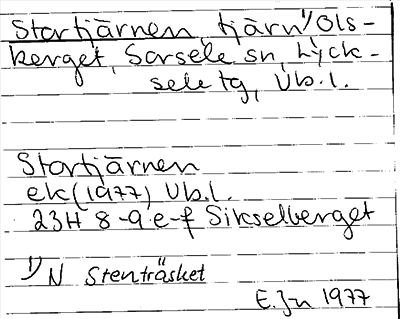 Stortjärnen, tjärn 1) Ols-
berget, Sorsele sn, Lyck-
sele tg, Vb.l.
Stortjärnen
ek (1977) Vb.l.
23H 8-9 e-f Sikselberget
1) N Stenträsket
E.Jn 1977